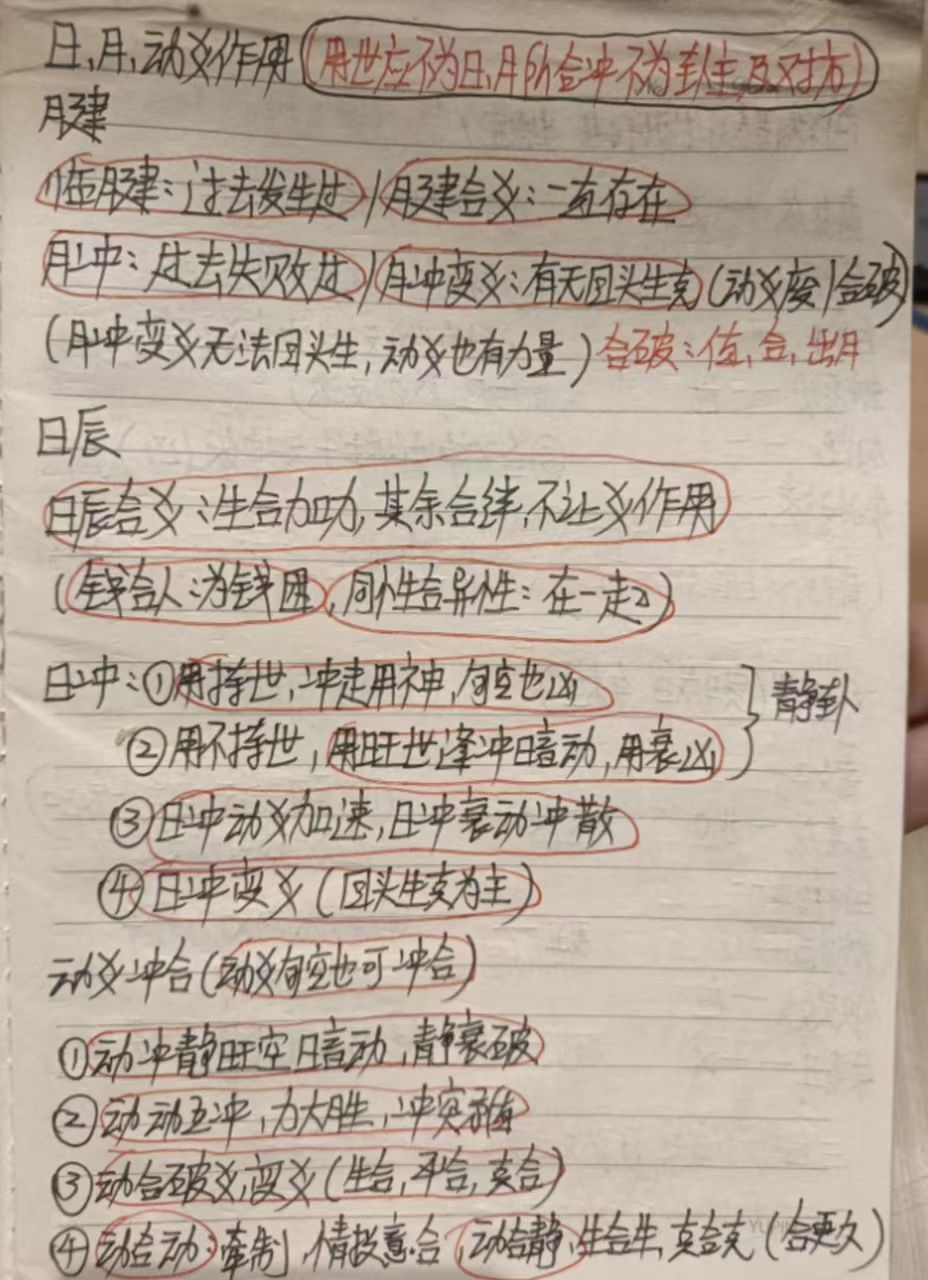 日、月、动爻作用(用世应不为日、月所合冲不为卦主及对方)
月建
临月建:过去发生过/月建合爻:一直存在
月冲:过去失败过/月冲变爻:有无回头生克(动爻废/合破)
(月冲变爻无法回头生,动爻也有力量)合破:值,合,出月
日辰
日辰合爻:生合加力,其余合绊,不让爻作用
(钱合人:为钱困,同性合异性:在一起)
日冲:①用持世,冲走用神,旬空也凶 } 静卦
②用不持世,用旺世逢冲暗动,用衰凶
③日冲动爻加速,日冲衰动冲散
④日冲变爻(回头生克为主)
动爻冲合(动爻旬空也可冲合)
①动冲静旺空暗动,静衰破
②动动互冲,力大胜,冲突
③动合破爻,变爻(生合,平合,克合)
④动合动:牵制,情投意合,动合静,生合生,克合克(合更久)